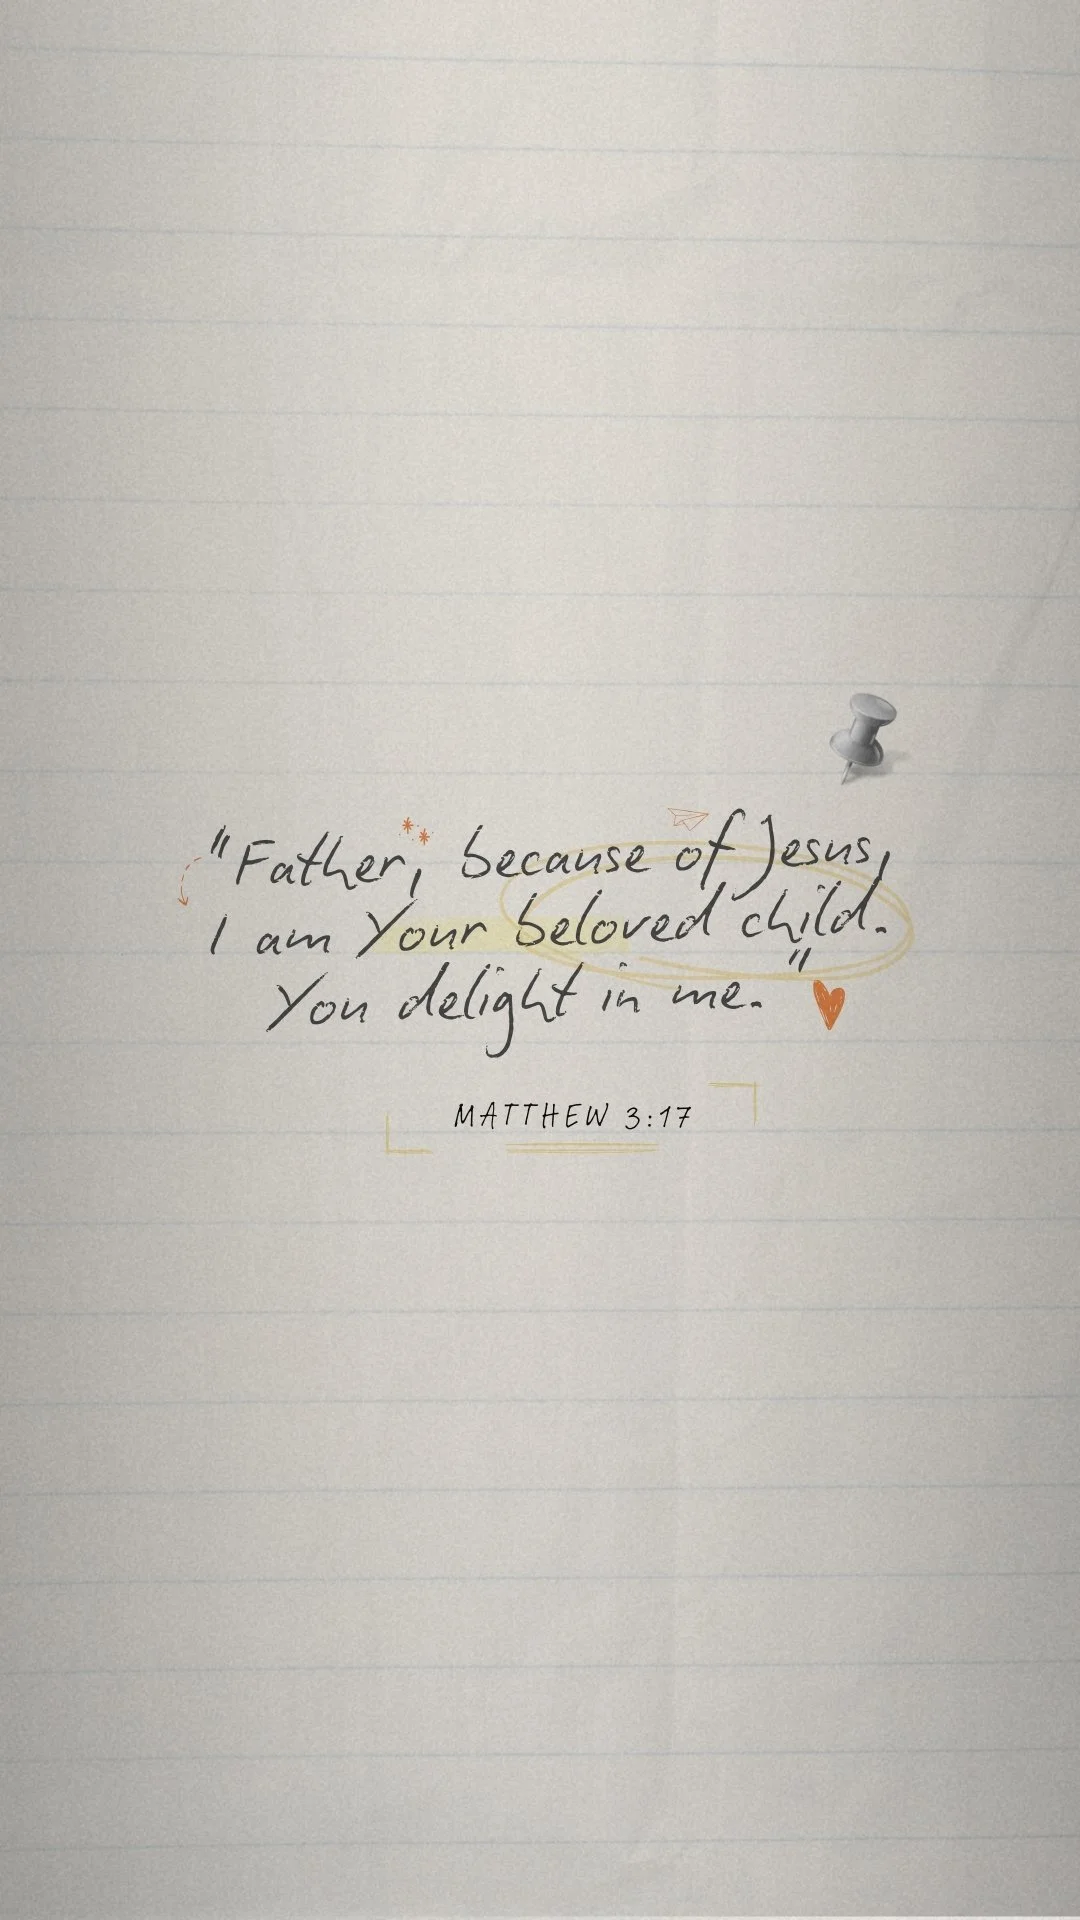 "Father, because of Jesus,
I am Your beloved child.
You delight in me."
MATTHEW 3:17